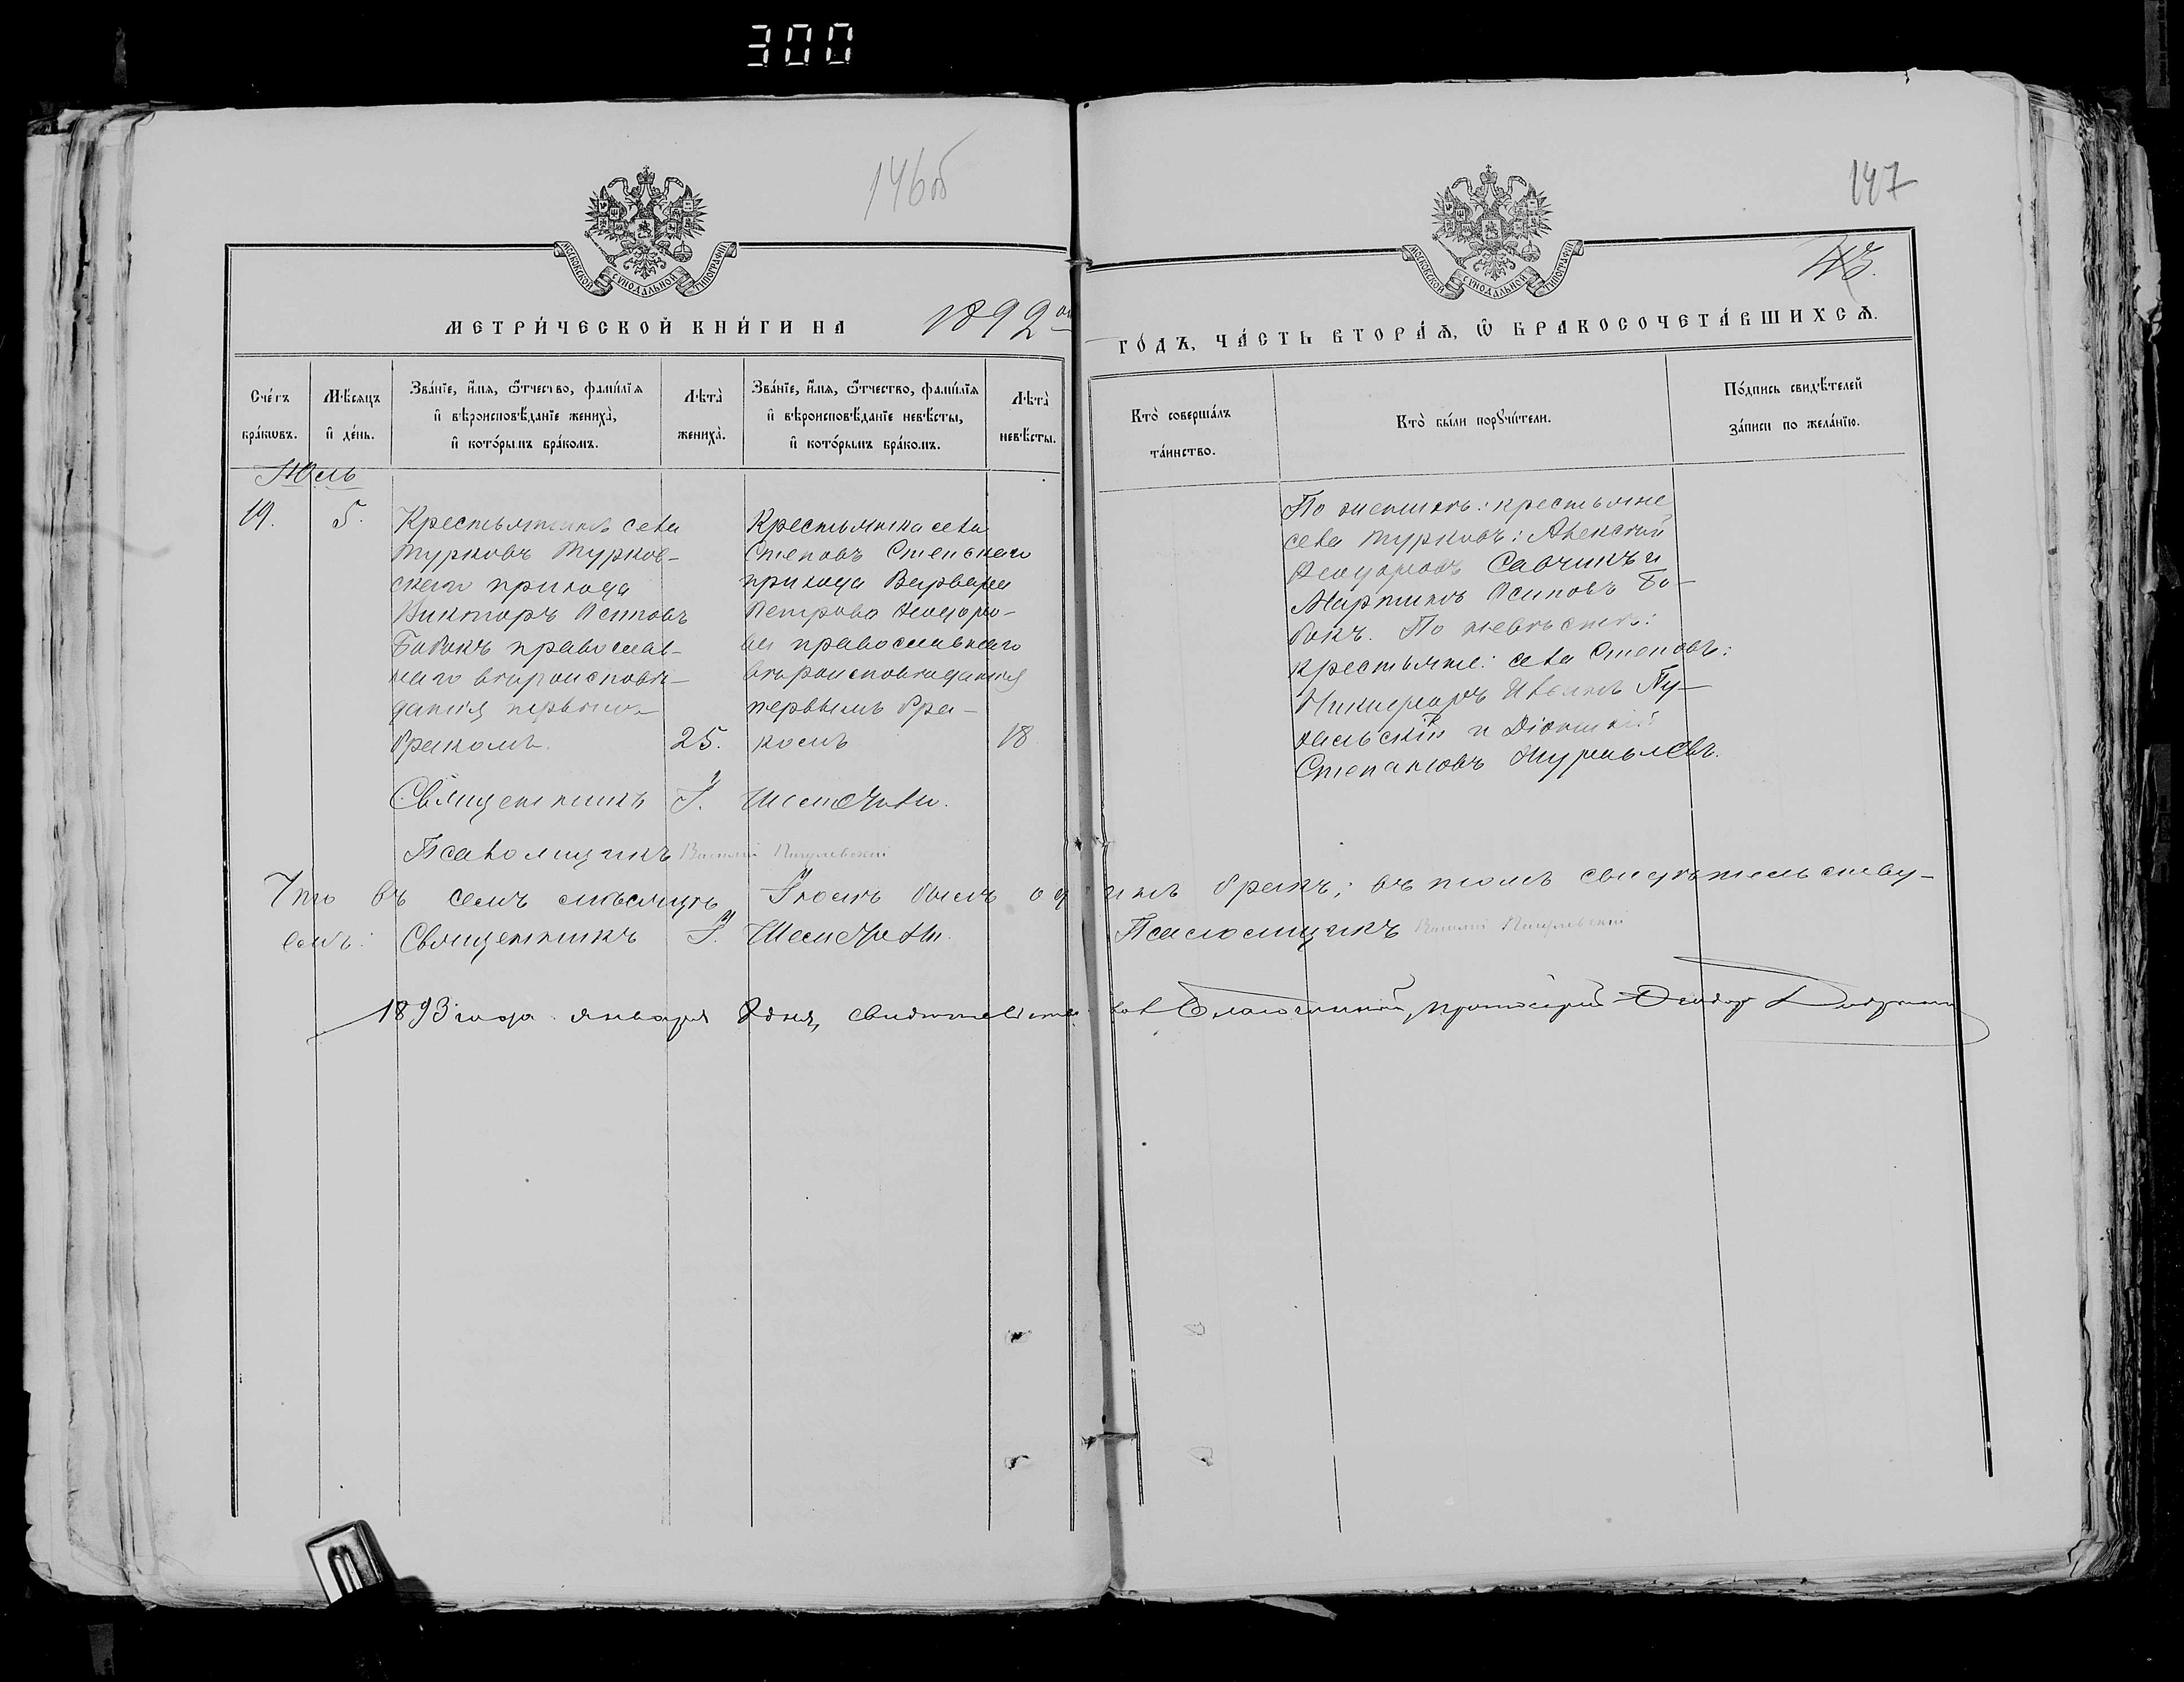 300
146об
147
43.
МОСКОВСКОЙ СѴНОДАЛЬНОЙ ТИПОГРАФІИ
МОСКОВСКОЙ СѴНОДАЛЬНОЙ ТИПОГРАФІИ
МЕТРИ́ЧЕСКОЙ КНИ́ГИ НА 1892ой
ГО́ДЪ, ЧА́СТЬ ВТОРА́Ѧ, Ѽ БРАКОСОЧЕТА́ВШИХСѦ.
Сче́тъ бра́ковъ.
Мѣ́сяцъ и҆ де́нь.
Зва́нїе, и҆́мѧ, ѻ҆́тчество, фами́лїѧ
и҆ вѣроисповѣ́данїе жениха̀,
и҆ кото́рымъ бра́комъ.
Лѣта̀ жениха̀.
Зва́нїе, и҆́мѧ, ѻ҆́тчество, фами́лїѧ
и҆ вѣроисповѣ́данїе невѣ́сты,
и҆ кото́рымъ бра́комъ.
Лѣта̀ невѣ́сты.
Кто̀ соверша́лъ
та́инство.
Кто̀ бы́ли порꙋчи́тели.
По́дпись свидѣ́телей
за́писи по жела́нїю.
Июль
19.
5.
Крестьянинъ села
Турковъ Турков-
скаго прихода
Викторъ Осиповъ
Бабакъ православ-
наго вѣроисповѣ-
данія первымъ
бракомъ.
25.
Крестьянка села
Степовъ Степскаго
прихода Варвара
Петрова
православнаго
вѣроисповѣданія
первымъ бра-
комъ
18
По женихѣ: крестьяне
села Турковъ: Алексѣй
Ѳеодоровъ Савчукъ и
Мартинъ Осиповъ Ба-
бакъ. По невѣстѣ:
крестьяне: села Степовъ:
Никифоръ Ивановъ
и Діонисій
Степановъ
Священникъ І.
Псаломщикъ Василій
Что въ семъ мѣсяцѣ Іюлѣ былъ одинъ бракъ; въ томъ свидѣтельству-
емъ: Священникъ І.
Псаломщикъ Василій
1893 года января 8 дня, свидѣтельствовалъ Благочинный, протоіерей Ѳеодоръ